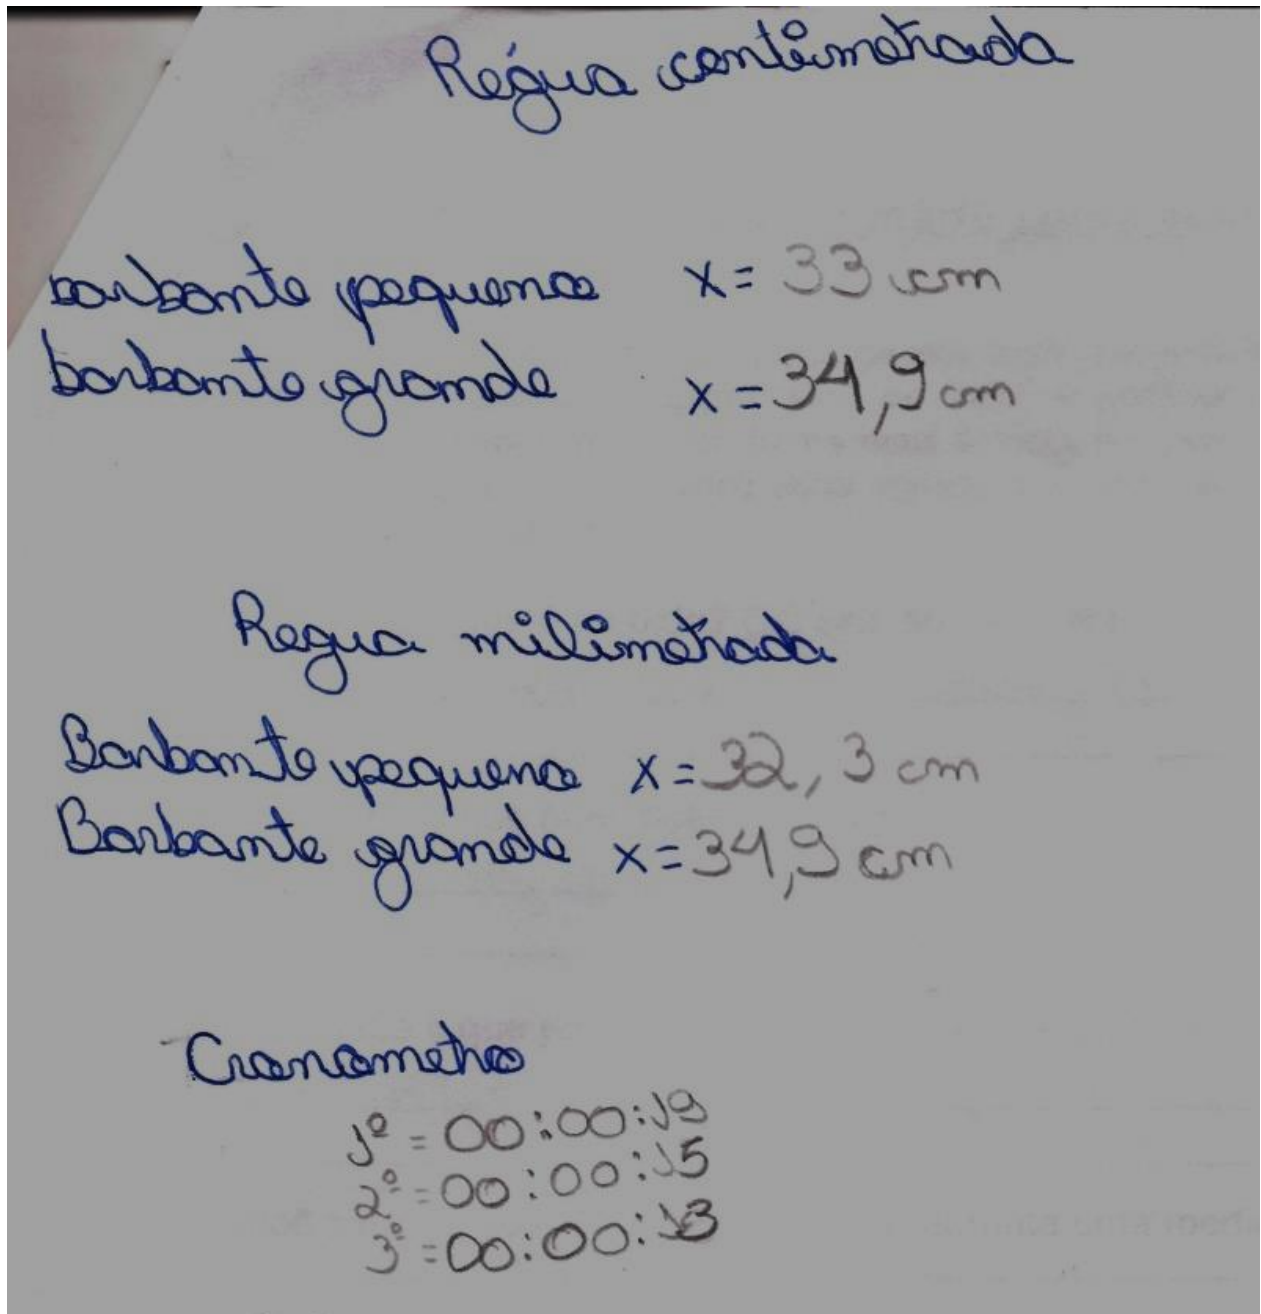 Régua centimetrada
barbante pequeno x = 33 cm
barbante grande x = 34,9 cm
Regua milimetrada
Barbante pequeno x = 32,3 cm
Barbante grande x = 34,9 cm
Cronometro
1º = 00:00:19
2º = 00:00:15
3º = 00:00:13